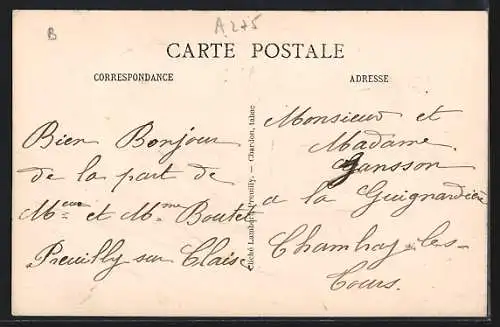 B
A 275
CARTE POSTALE
CORRESPONDANCE
ADRESSE
Bien Bonjour
de la part de
Meur et Mme Boutet
Preuilly sur Claise
Cliché Lambert, Preuilly. — Chardon, tabac
Monsieur et
Madame
Jansson
a la Guignardière
Chambray-les-
Tours.